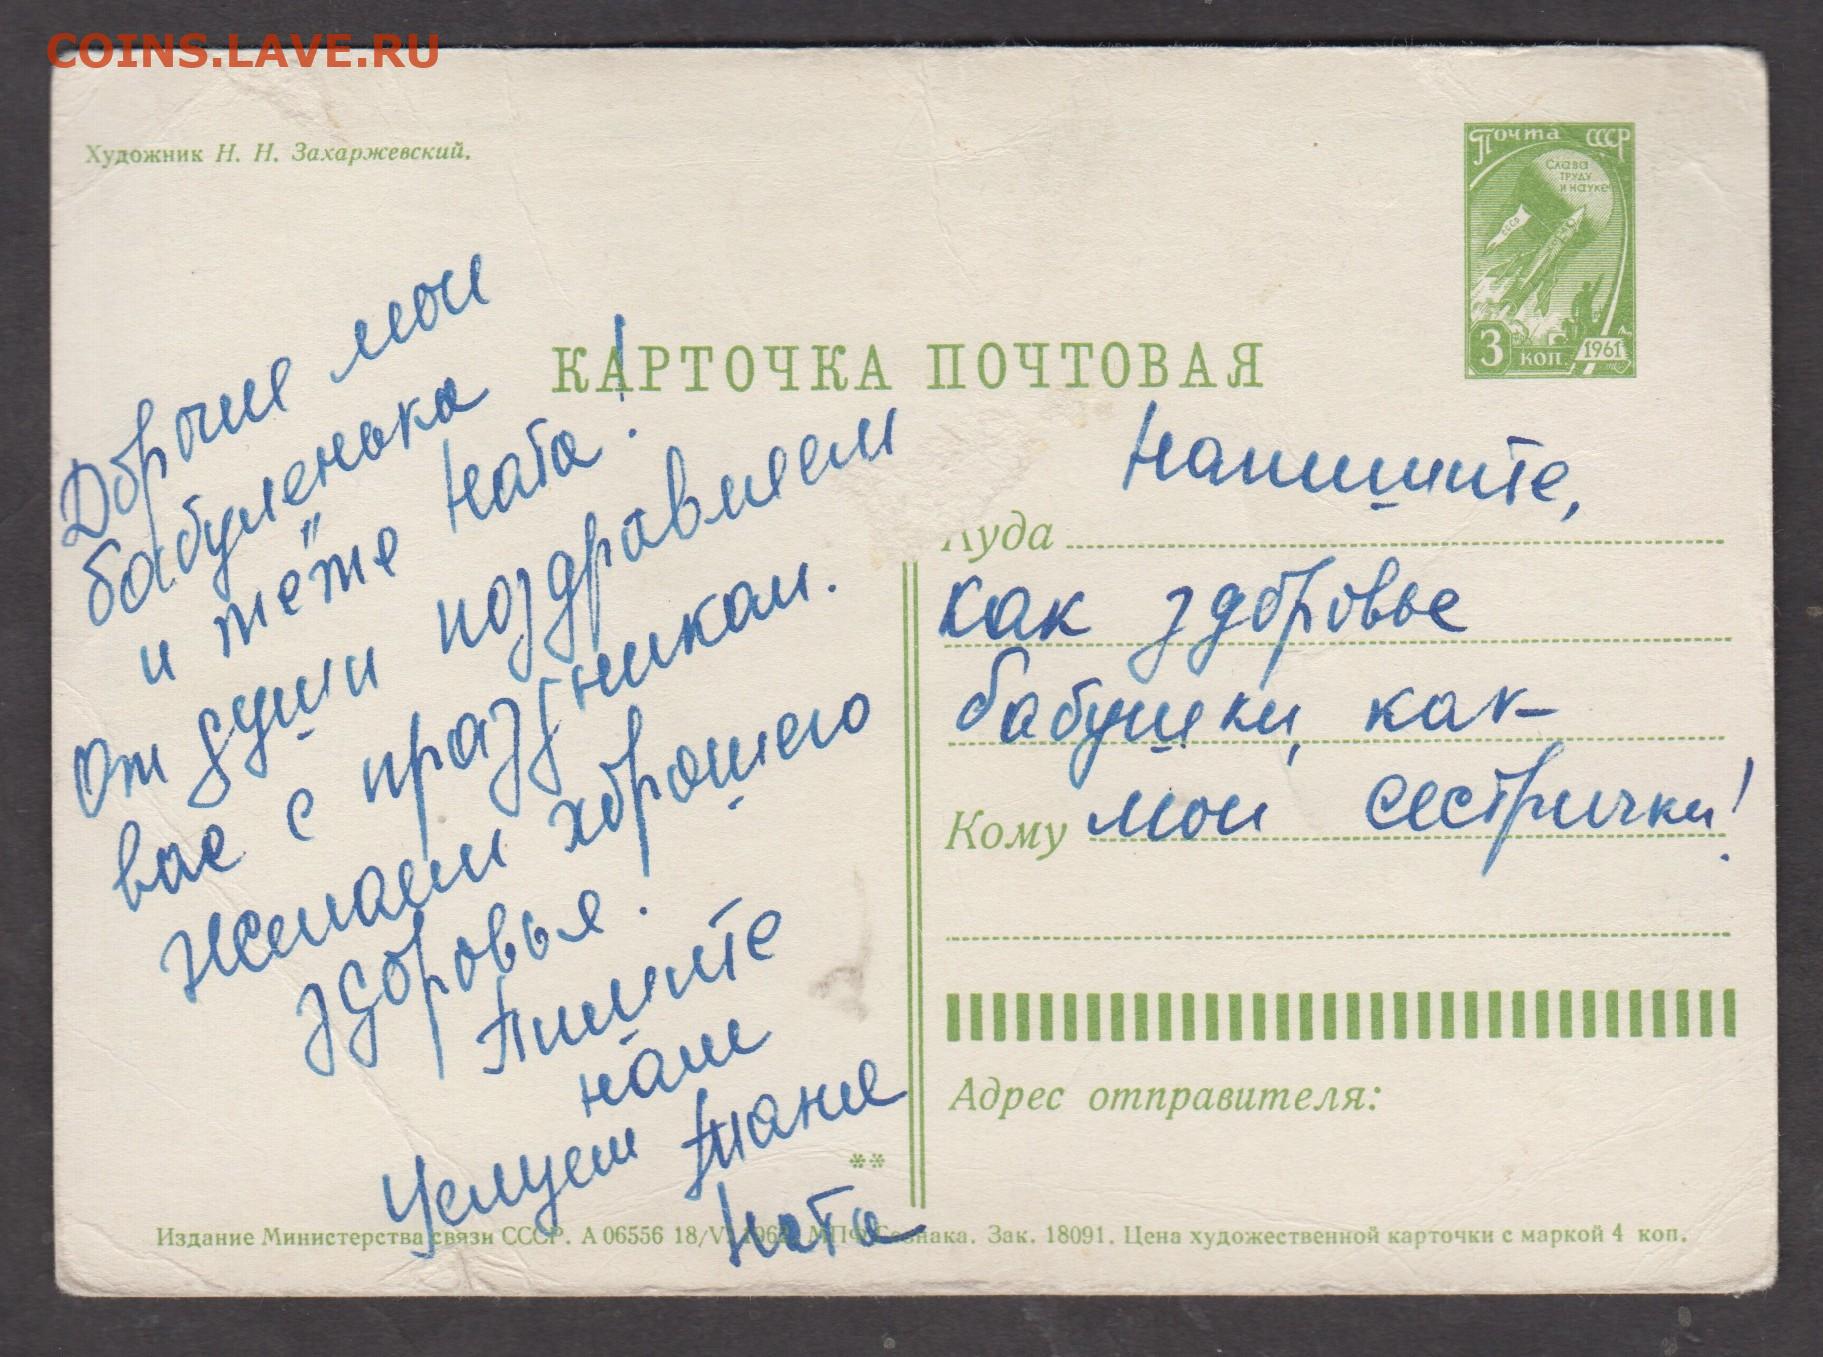 COINS.LAVE.RU
Художник Н. Н. Захаржевский.
Почта СССР
Слава
труду
и науке
СССР
3 коп. 1961
КАРТОЧКА ПОЧТОВАЯ
Дорогие мои
бабуленька
и тётя Ната!
От души поздравляем
вас с праздником.
Желаем хорошего
здоровья.
Пишите
нам
Целуем Таня
Ната
Напишите,
Куда
как здоровье
бабушки, как
Кому мои сестрички!
Адрес отправителя:
**
Издание Министерства связи СССР. А 06556 18/V 196 МПФ Гознака. Зак. 18091. Цена художественной карточки с маркой 4 коп.